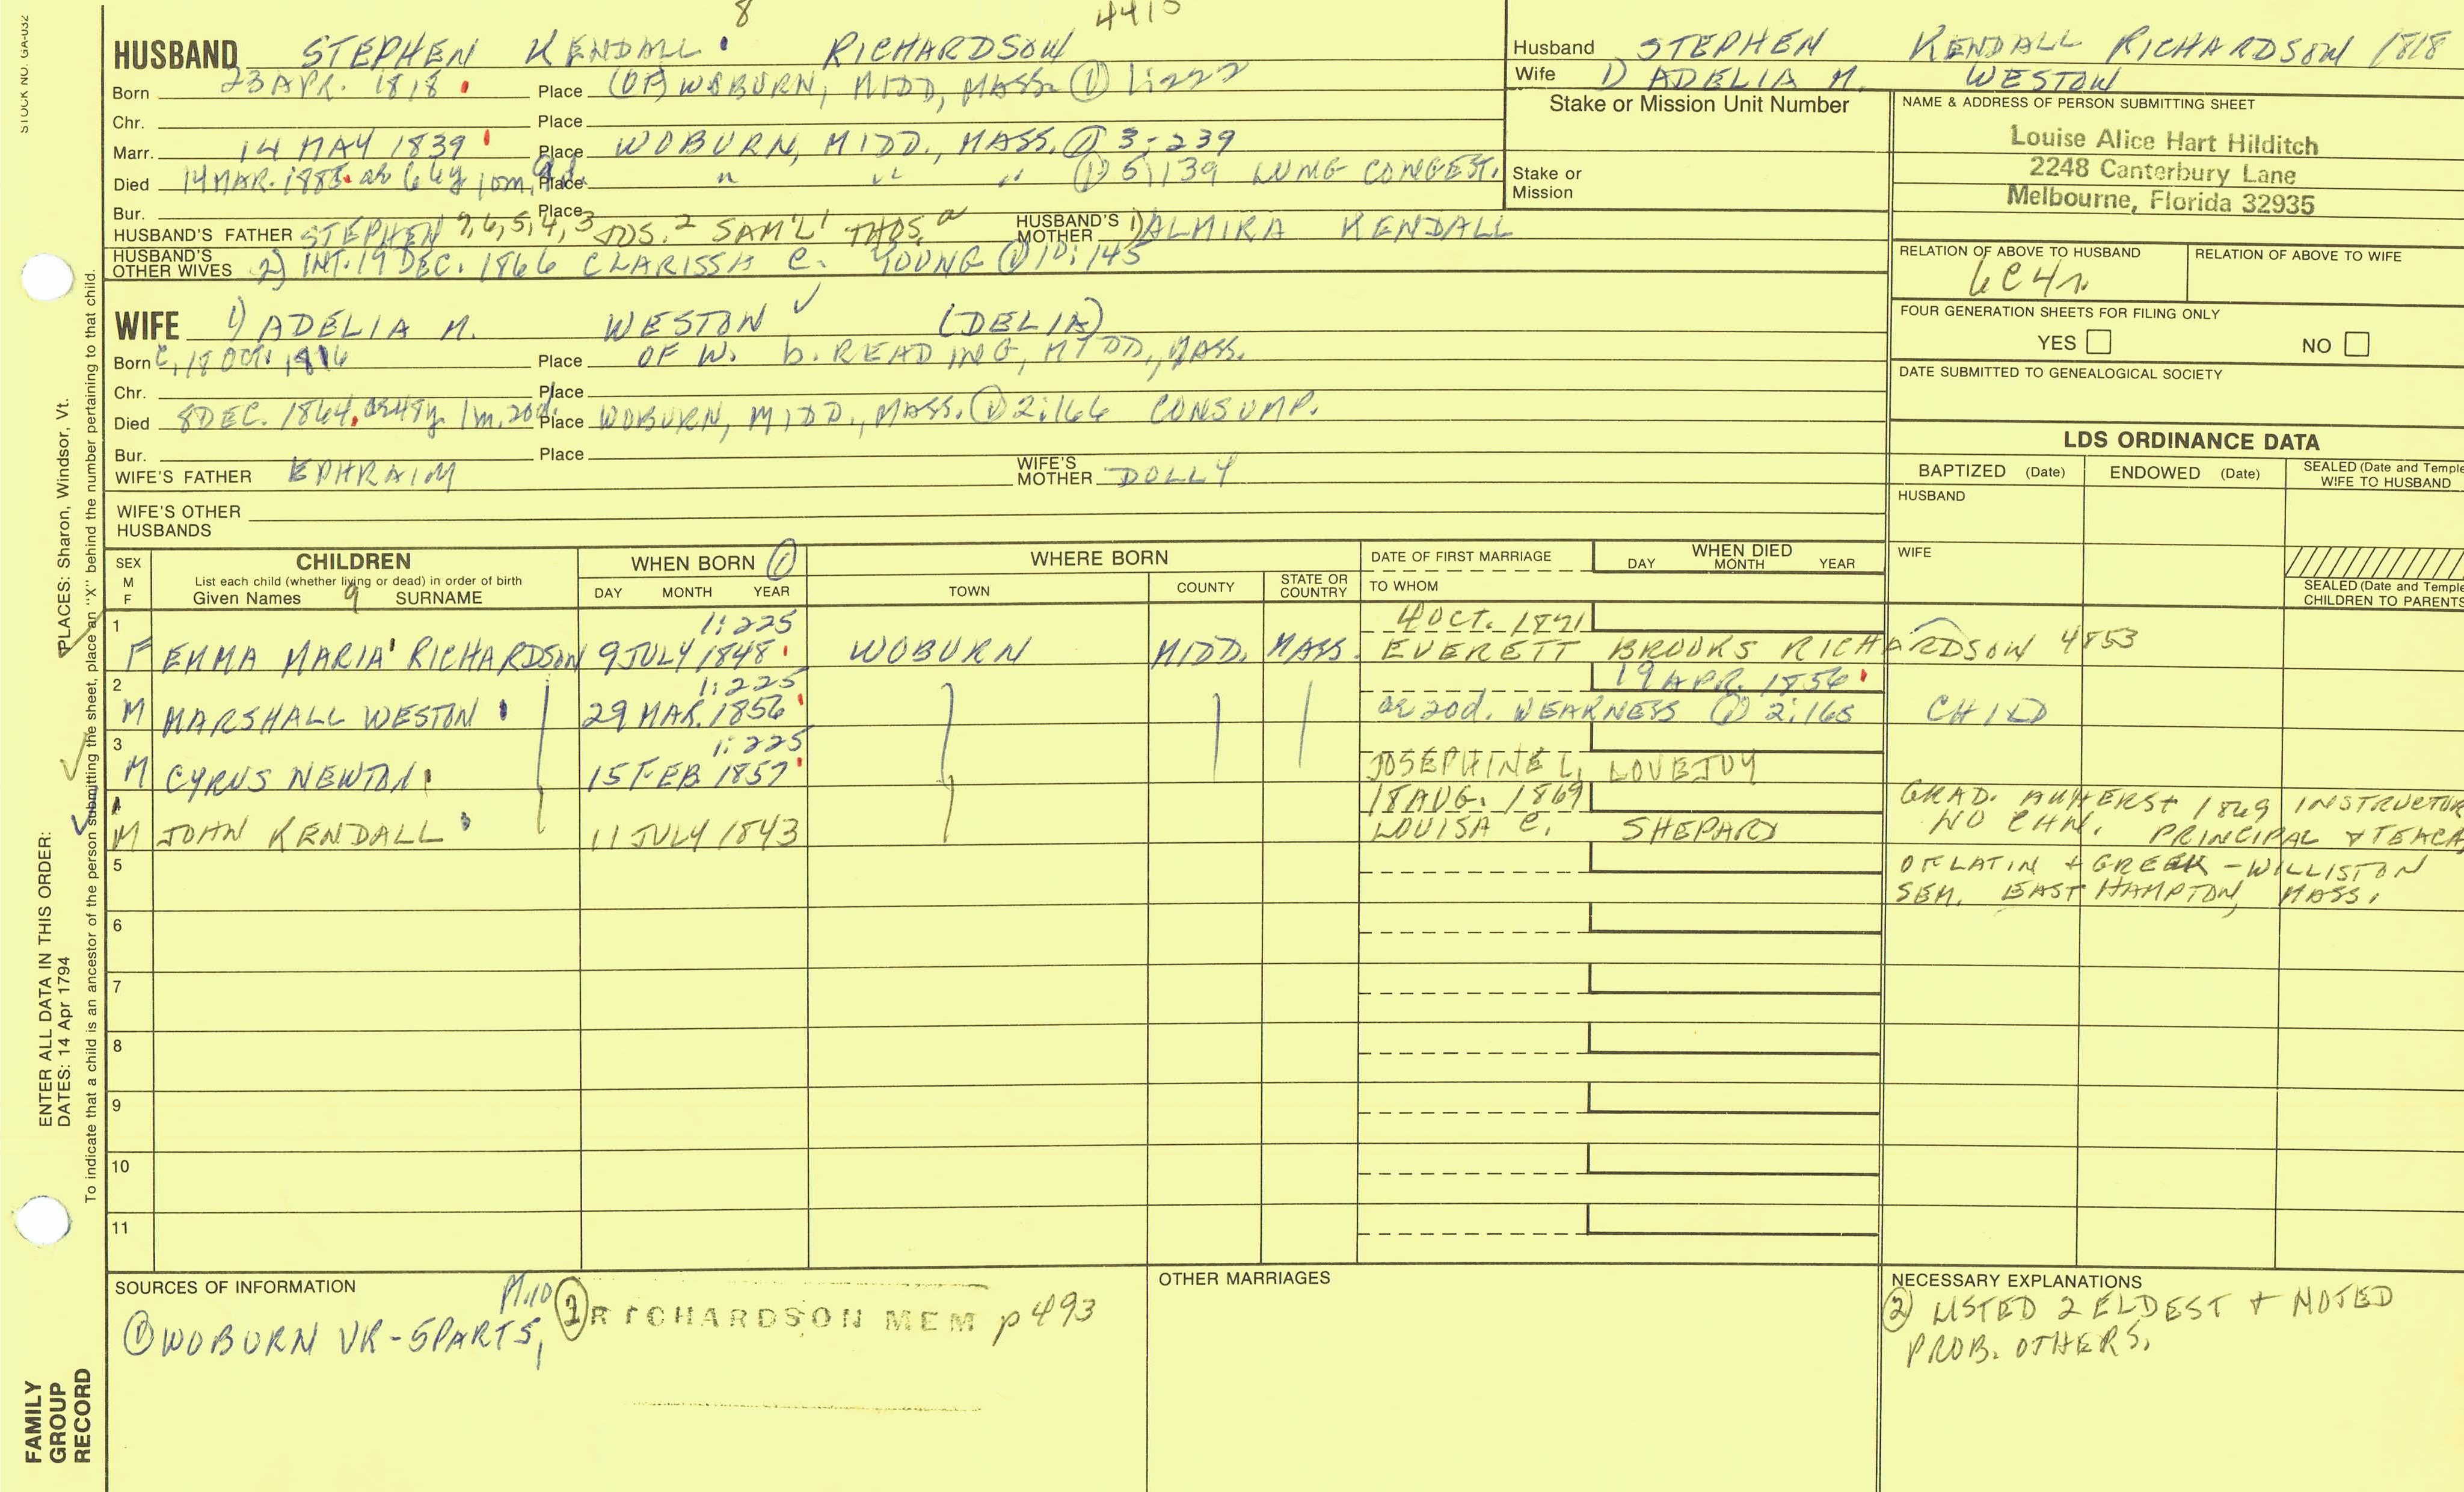 STOCK NO. GA-032
8
HUSBAND STEPHEN KENDALL RICHARDSON
Born 23 APR. 1818 Place (OF) WOBURN, MIDD, MASS. ① 1:222
Chr. Place
Marr. 14 MAY 1839 Place WOBURN, MIDD., MASS. ① 3-239
Died 14 MAR. 1885 ae 66y 10m, Place " " " ① 5:139 LUNG CONGEST.
Bur. Place
HUSBAND'S FATHER STEPHEN 7, 6, 5, 4, 3 JOS. 2 SAM'L 1 THOS. a HUSBAND'S MOTHER 1) ALMIRA KENDALL
HUSBAND'S OTHER WIVES 2) INT. 19 DEC. 1866 CLARISSA C. YOUNG ① 10:145
WIFE 1) ADELIA M. WESTON (DELIA)
Born C, 18 OCT. 1816 Place OF W. b. READING, MIDD., MASS.
Chr. Place
Died 8 DEC. 1864, ae 48y 1m, 20d. Place WOBURN, MIDD., MASS. ① 2:166 CONSUMP.
Bur. Place
WIFE'S FATHER EPHRAIM WIFE'S MOTHER DOLLY
WIFE'S OTHER HUSBANDS
Husband STEPHEN KENDALL RICHARDSON 1818
Wife 1) ADELIA M. WESTON
Stake or Mission Unit Number
Stake or Mission
NAME & ADDRESS OF PERSON SUBMITTING SHEET
Louise Alice Hart Hilditch
2248 Canterbury Lane
Melbourne, Florida 32935
RELATION OF ABOVE TO HUSBAND RELATION OF ABOVE TO WIFE
6C4r.
FOUR GENERATION SHEETS FOR FILING ONLY
YES NO
DATE SUBMITTED TO GENEALOGICAL SOCIETY
LDS ORDINANCE DATA
BAPTIZED (Date) ENDOWED (Date) SEALED (Date and Temple WIFE TO HUSBAND
HUSBAND
WIFE
SEALED (Date and Temple CHILDREN TO PARENTS
SEX M F CHILDREN WHEN BORN ① WHERE BORN DATE OF FIRST MARRIAGE WHEN DIED
List each child (whether living or dead) in order of birth
Given Names 9 SURNAME DAY MONTH YEAR TOWN COUNTY STATE OR COUNTRY TO WHOM DAY MONTH YEAR
1 1:225 4 OCT. 1871
F EMMA MARIA RICHARDSON 9 JULY 1848 WOBURN MIDD. MASS. EVERETT BROOKS RICHARDSON 4853
2 1:225 19 APR. 1856
M MARSHALL WESTON 29 MAR. 1856 ae 20d. WEAKNESS ① 2:165 CHILD
3 1:225
M CYRUS NEWTON 15 FEB 1857 JOSEPHINE L. LOVEJOY
4 18 AUG. 1869 GRAD. AMHERST 1869 INSTRUCTOR
M JOHN KENDALL 11 JULY 1843 LOUISA C. SHEPARD NO CHN. PRINCIPAL & TEACH
5 OF LATIN + GREEK - WILLISTON
SEM. EAST HAMPTON, MASS.
6
7
8
9
10
11
SOURCES OF INFORMATION
① WOBURN VR - 5 PARTS, ② RICHARDSON MEM p 493
OTHER MARRIAGES
NECESSARY EXPLANATIONS
② LISTED 2 ELDEST + NOTED
PROB. OTHERS.
ENTER ALL DATA IN THIS ORDER:
DATES: 14 Apr 1794 PLACES: Sharon, Windsor, Vt.
To indicate that a child is an ancestor of the person submitting the sheet, place an "X" behind the number pertaining to that child.
FAMILY
GROUP
RECORD